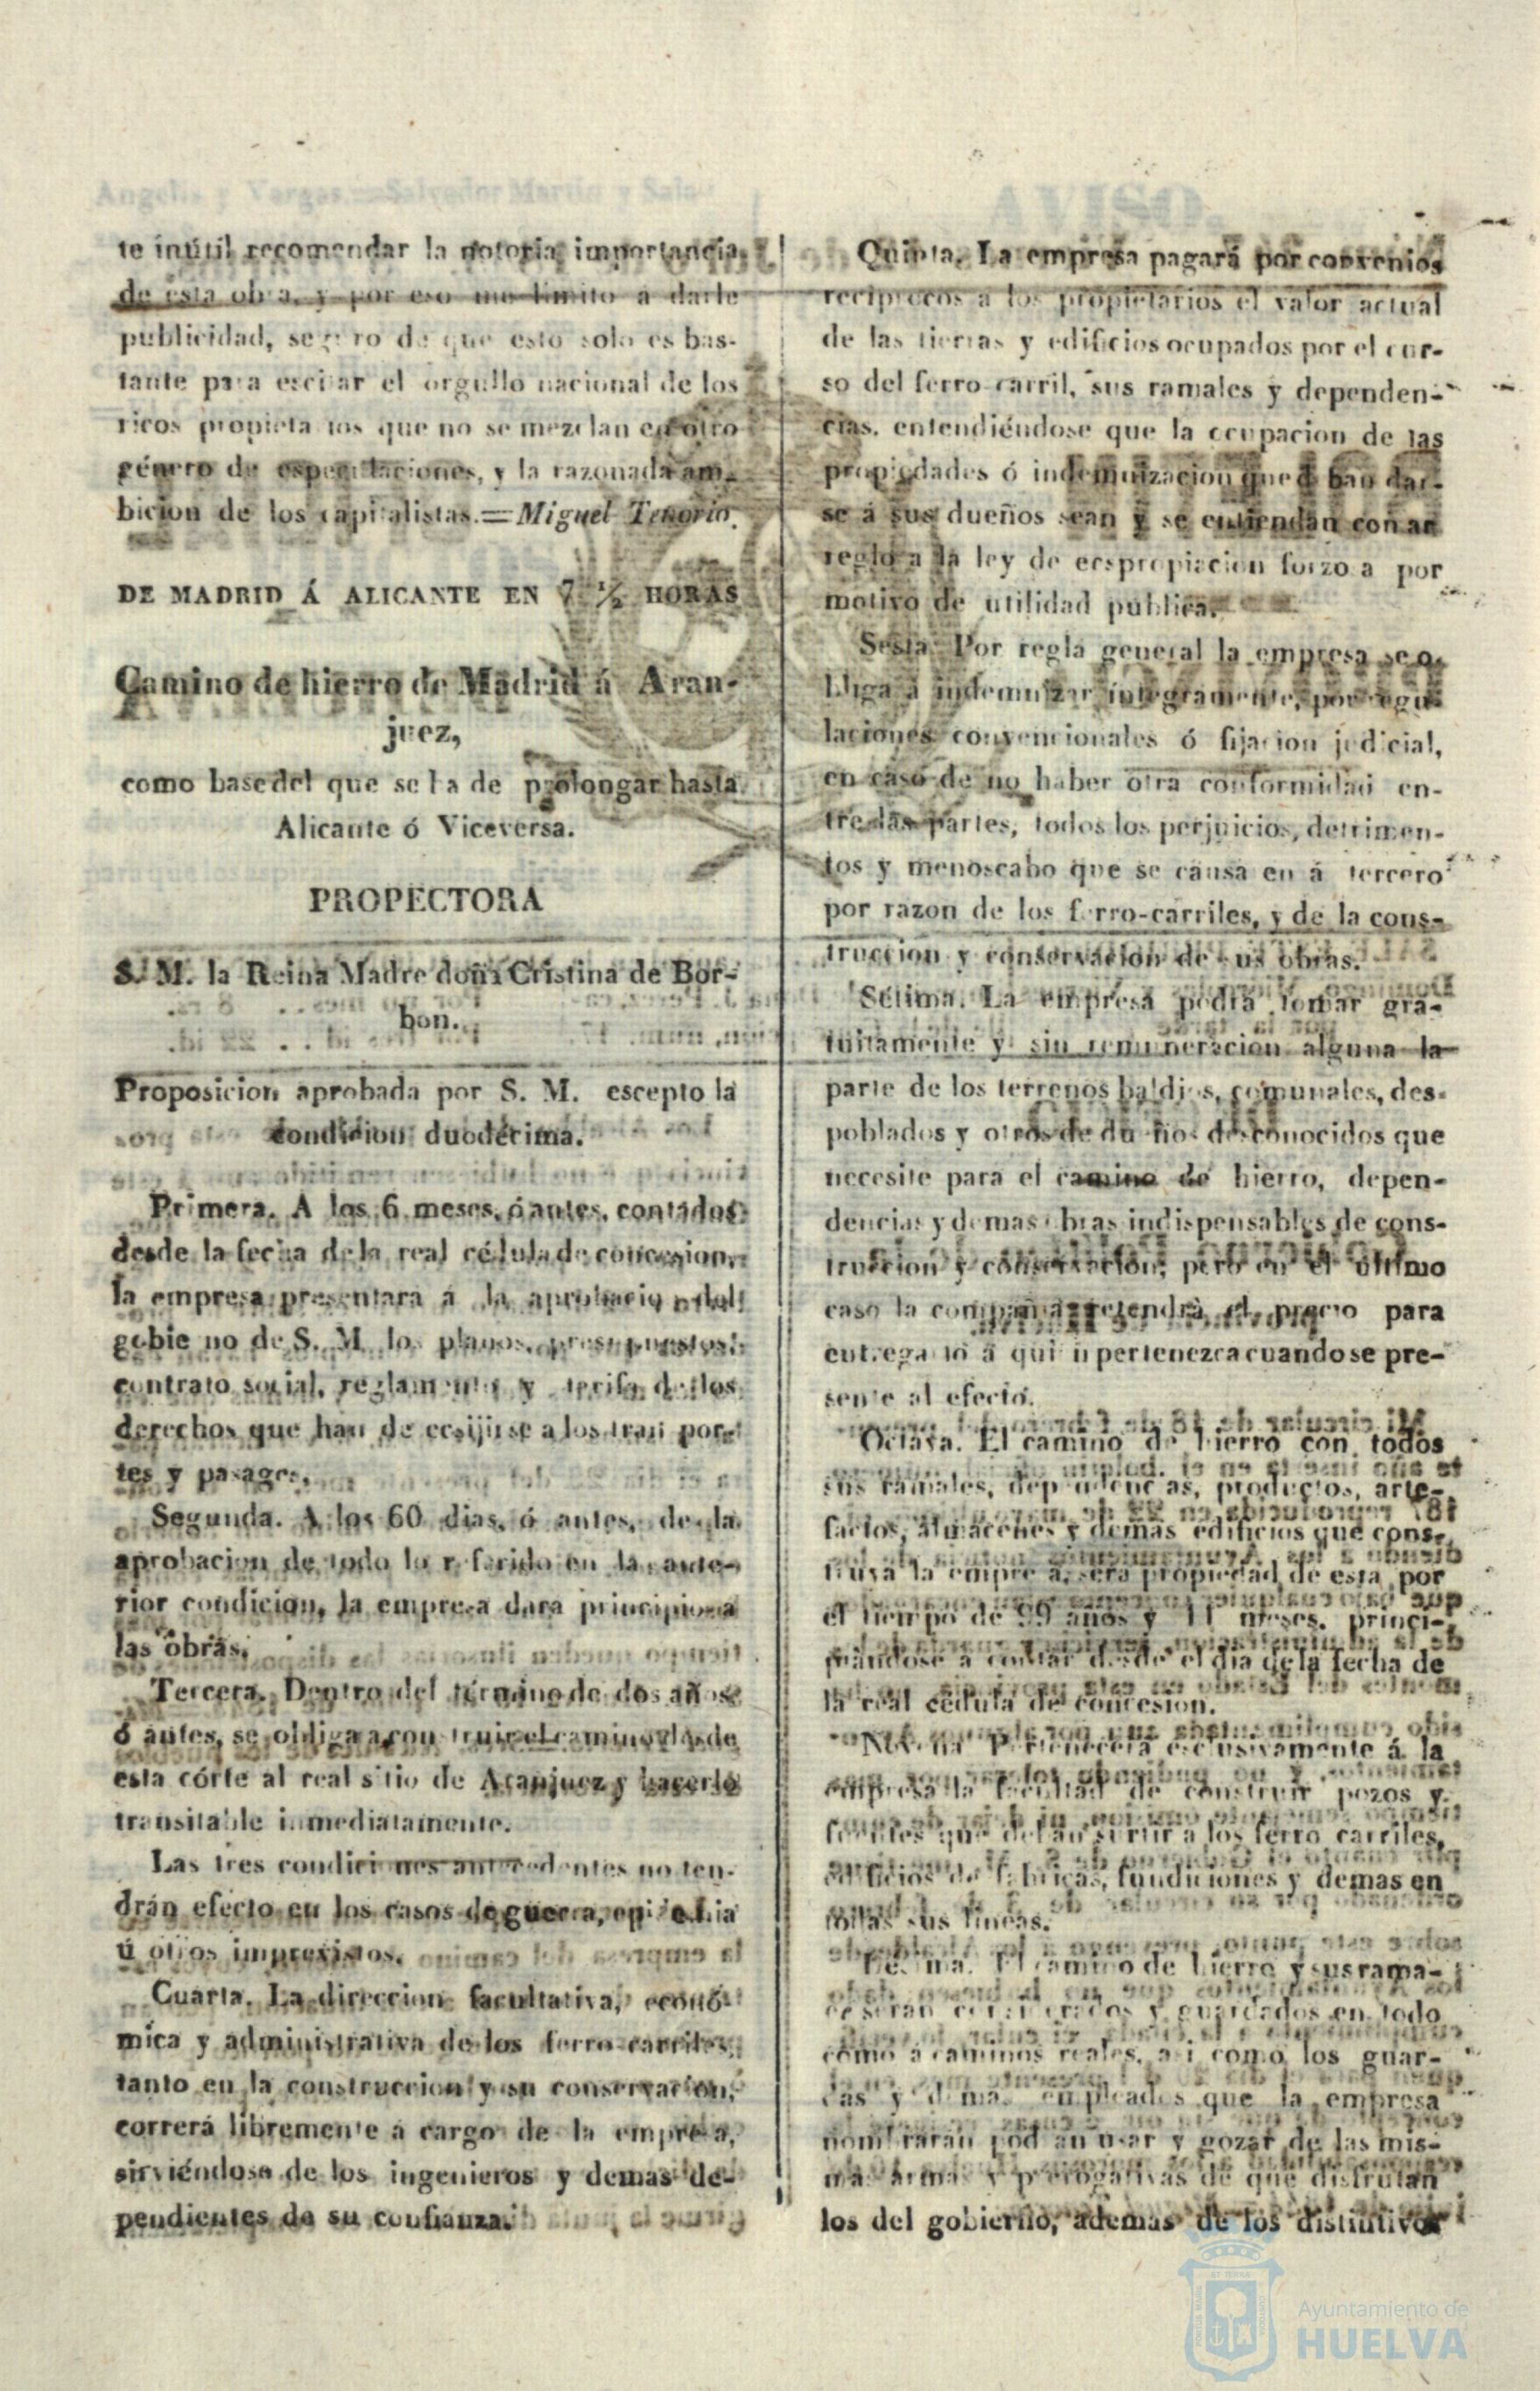 te inútil recomendar la notoria importancia
de esta obra, y por eso me limito a darle
publicidad, seguro de que esto solo es bas-
tante para escitar el orgullo nacional de los
ricos propietarios que no se mezclan en otro
género de especulaciones, y la razonada am-
bicion de los capitalistas.=Miguel Tenorio.
DE MADRID Á ALICANTE EN 7 ½ HORAS
Camino de hierro de Madrid á Aran-
juez,
como base del que se ha de prolongar hasta
Alicante ó Viceversa.
PROPECTORA
S. M. la Reina Madre doña Cristina de Bor-
bon.
Proposicion aprobada por S. M. escepto la
condicion duodécima.
Primera. A los 6 meses, ó antes, contados
desde la fecha de la real cédula de concesion,
la empresa presentara á la aprobacion del
gobierno de S. M. los planos, presupuestos,
contrato social, reglamentos y tarifa de los
derechos que han de ecsijirse a los trasportes
tes y pasages.
Segunda. A los 60 dias, ó antes, de la
aprobacion de todo lo referido en la ante-
rior condicion, la empresa dara principio a
las obras.
Tercera. Dentro del término de dos años
ó antes, se obliga a construir el camino desde
esta córte al real sitio de Aranjuez y hacerlo
transitable inmediatamente.
Las tres condiciones antecedentes no ten-
drán efecto en los casos de guerra, epidemia
ú otros imprevistos.
Cuarta. La direccion facultativa, econó-
mica y administrativa de los ferro-carriles,
tanto en la construccion y su conservacion,
correrá libremente a cargo de la empresa,
sirviéndose de los ingenieros y demas de-
pendientes de su confianza.
Quinta. La empresa pagará por convenios
recíprocos a los propietarios el valor actual
de las tierras y edificios ocupados por el cur-
so del ferro carril, sus ramales y dependen-
cias, entendiéndose que la ocupacion de las
propiedades ó indemnizacion que han dar-
se á sus dueños sean y se entiendan con ar
reglo a la ley de ecspropiacion forzosa por
motivo de utilidad publica.
Sesta. Por regla general la empresa se o-
bliga á indemnizar integramente, por regu-
laciones convencionales ó fijacion judicial,
en caso de no haber otra conformidad en-
tre las partes, todos los perjuicios, detrimen-
tos y menoscabo que se causasen á tercero
por razon de los ferro-carriles, y de la cons-
truccion y conservacion de sus obras.
Sétima. La empresa podrá tomar gra-
tuitamente y sin remuneracion alguna la
parte de los terrenos baldios, comunales, des-
poblados y otros de dueños desconocidos que
necesite para el camino de hierro, depen-
dencias y demas obras indispensables de cons-
truccion y conservacion; pero en el ultimo
caso la compañia retendrá el precio para
entregarlo á quien pertenezca cuando se pre-
sente al efecto.
Octava. El camino de hierro con todos
sus ramales, dependencias, productos, arte-
factos, almacenes y demas edificios que cons-
truya la empresa, será propiedad de esta por
el tiempo de 99 años y 11 meses, princi-
piándose á contar desde el dia de la fecha de
la real cédula de concesion.
Novena. Pertenecerá esclusivamente á la
empresa la facultad de construir pozos y
fuentes que deban surtir a los ferro carriles,
edificios de fabricas, fundiciones y demas en
todas sus lineas.
Décima. El camino de hierro y sus rama-
les serán considerados y guardados en todo
como á caminos reales, asi como los guar-
das y demas empleados que la empresa
nombraran podran usar y gozar de las mis-
mas armas y prerogativas de que disfrutan
los del gobierno, ademas de los distintivos
Ayuntamiento de
HUELVA